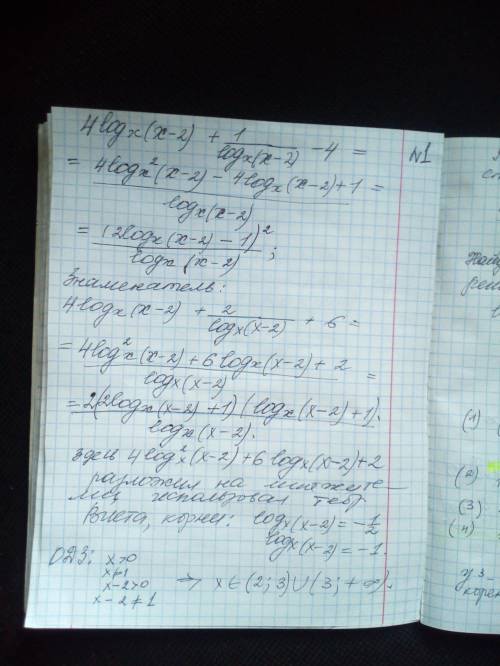 4log_x(x-2) + 1/log_x(x-2) - 4 =
N1
= (4log_x²(x-2) - 4log_x(x-2)+1)/log_x(x-2) =
= (2log_x(x-2) - 1)²/log_x(x-2) ;
Знаменатель:
4log_x(x-2) + 2/log_x(x-2) + 6 =
= (4log_x²(x-2) + 6log_x(x-2) + 2)/log_x(x-2) =
= 2(2log_x(x-2) + 1)(log_x(x-2) + 1)/log_x(x-2).
здесь 4log_x²(x-2)+6log_x(x-2)+2
разложил на множите-
ли, использовал теор.
Виета, корни: log_x(x-2) = -1/2
log_x(x-2) = -1.
ОДЗ: x>0
x≠1
x-2>0
x-2≠1
⇒ x∈(2;3)∪(3;+∞).
(1)
(2)
(3)
(4)